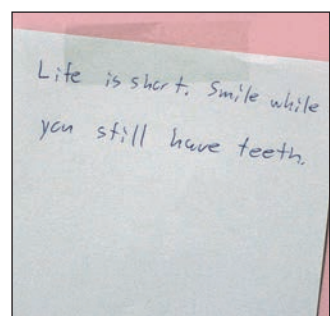 Life is short. Smile while
you still have teeth.